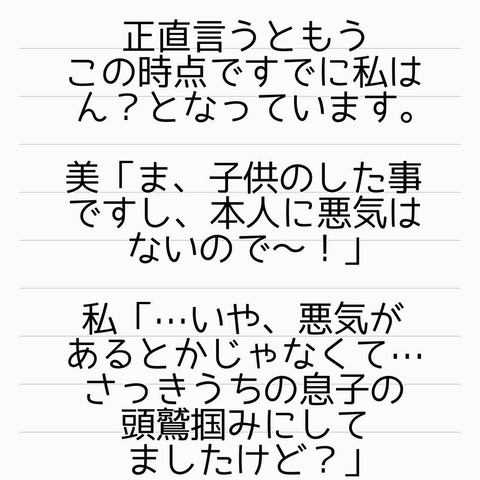 正直言うともう
この時点ですでに私は
ん？となっています。
美「ま、子供のした事
ですし、本人に悪気は
ないので〜！」
私「…いや、悪気が
あるとかじゃなくて…
さっきうちの息子の
頭鷲掴みにして
ましたけど？」